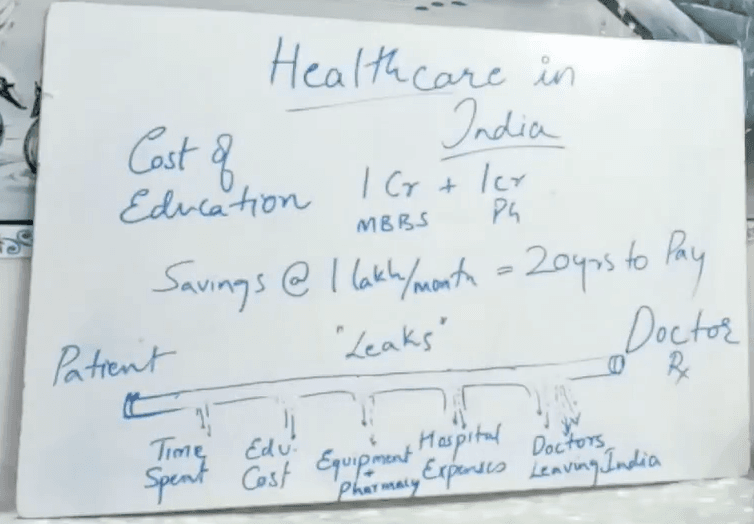 Healthcare in
India
Cost of
Education
1 Cr + 1cr
MBBS PG
Savings @ 1 lakh/month = 20yrs to Pay
"Leaks"
Patient
Doctor
Rx
Time
Spent
Edu.
Cost
Equipment
+
Pharmacy
Hospital
Expenses
Doctors
Leaving India